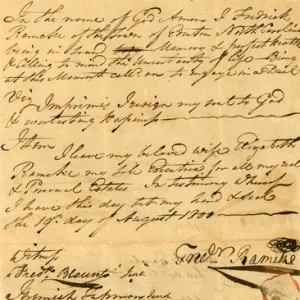 In the name of God Amen I Fredrick
Ramcke of the Town of Edenton North Carolina
being in sound Memory & perfect health
& calling to mind the uncertainty of life Being
at this Moment called on to Engage in a Duel
Viz Imprimis I resign my soul to God
& everlasting Hapiness
Item
I leave my beloved wife Elizabeth
Ramcke my sole Executrix for all my real
& Personal Estates In testimony whereof
I have this day set my hand & seal
the 19th day of August 1800
Fredk Ramcke
Witness
Fredk Blount
Jeremiah